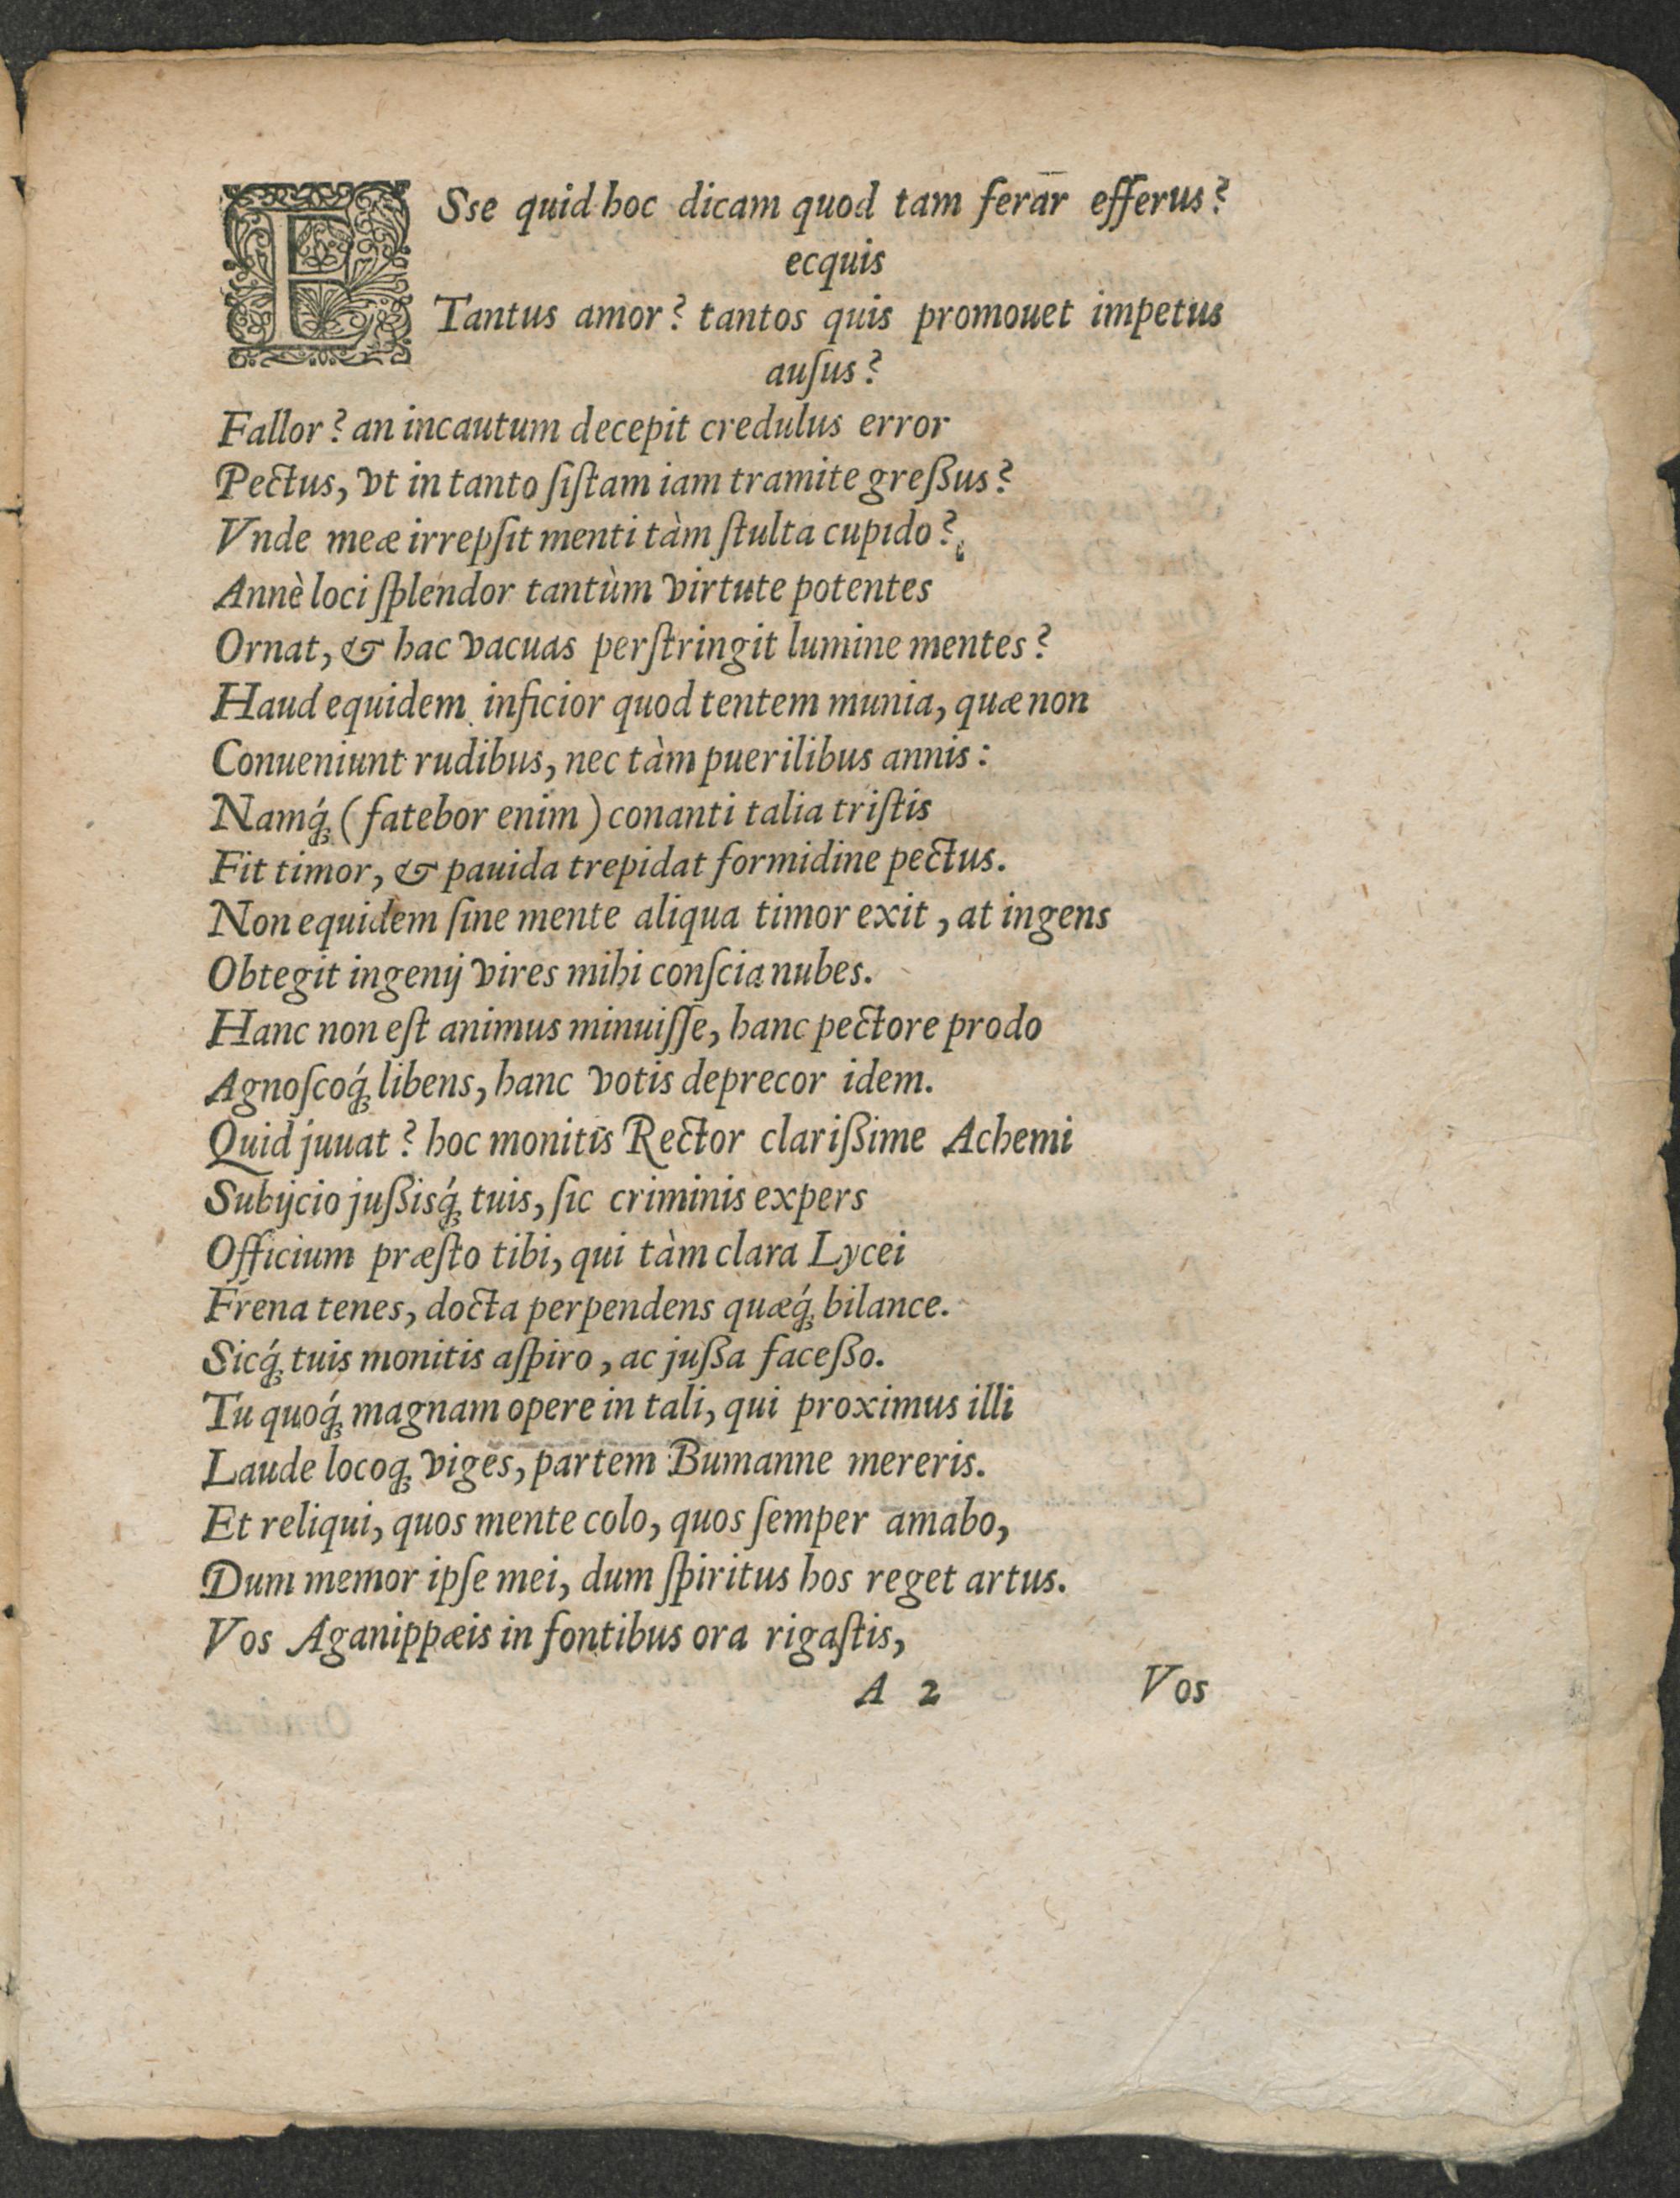 ESse quid hoc dicam quod tam ferar efferus?
ecquis
Tantus amor? tantos quis promouet impetus
auſus?
Fallor? an incautum decepit credulus error
Pectus, vt in tanto ſiſtam iam tramite greßus?
Vnde meæ irrepſit menti tàm ſtulta cupido?
Annè loci ſplendor tantùm virtute potentes
Ornat, & hac vacuas perſtringit lumine mentes?
Haud equidem inficior quod tentem munia, quæ non
Conueniunt rudibus, nec tàm puerilibus annis:
Namq́ꝫ (fatebor enim) conanti talia triſtis
Fit timor, & pauida trepidat formidine pectus.
Non equidem ſine mente aliqua timor exit, at ingens
Obtegit ingenij vires mihi conſcia nubes.
Hanc non eſt animus minuiſſe, hanc pectore prodo
Agnoſcoq́ꝫ libens, hanc votis deprecor idem.
Quid juuat? hoc monitis Rector clarißime Achemi
Subijcio jußisq́ꝫ tuis, ſic criminis expers
Officium præſto tibi, qui tàm clara Lycei
Frena tenes, docta perpendens quæq́ꝫ bilance.
Sicq́ꝫ tuis monitis aſpiro, ac jußa faceßo.
Tu quoq́ꝫ magnam opere in tali, qui proximus illi
Laude locoqꝫ viges, partem Bumanne mereris.
Et reliqui, quos mente colo, quos ſemper amabo,
Dum memor ipſe mei, dum ſpiritus hos reget artus.
Vos Aganippæis in fontibus ora rigaſtis,
A 2 Vos